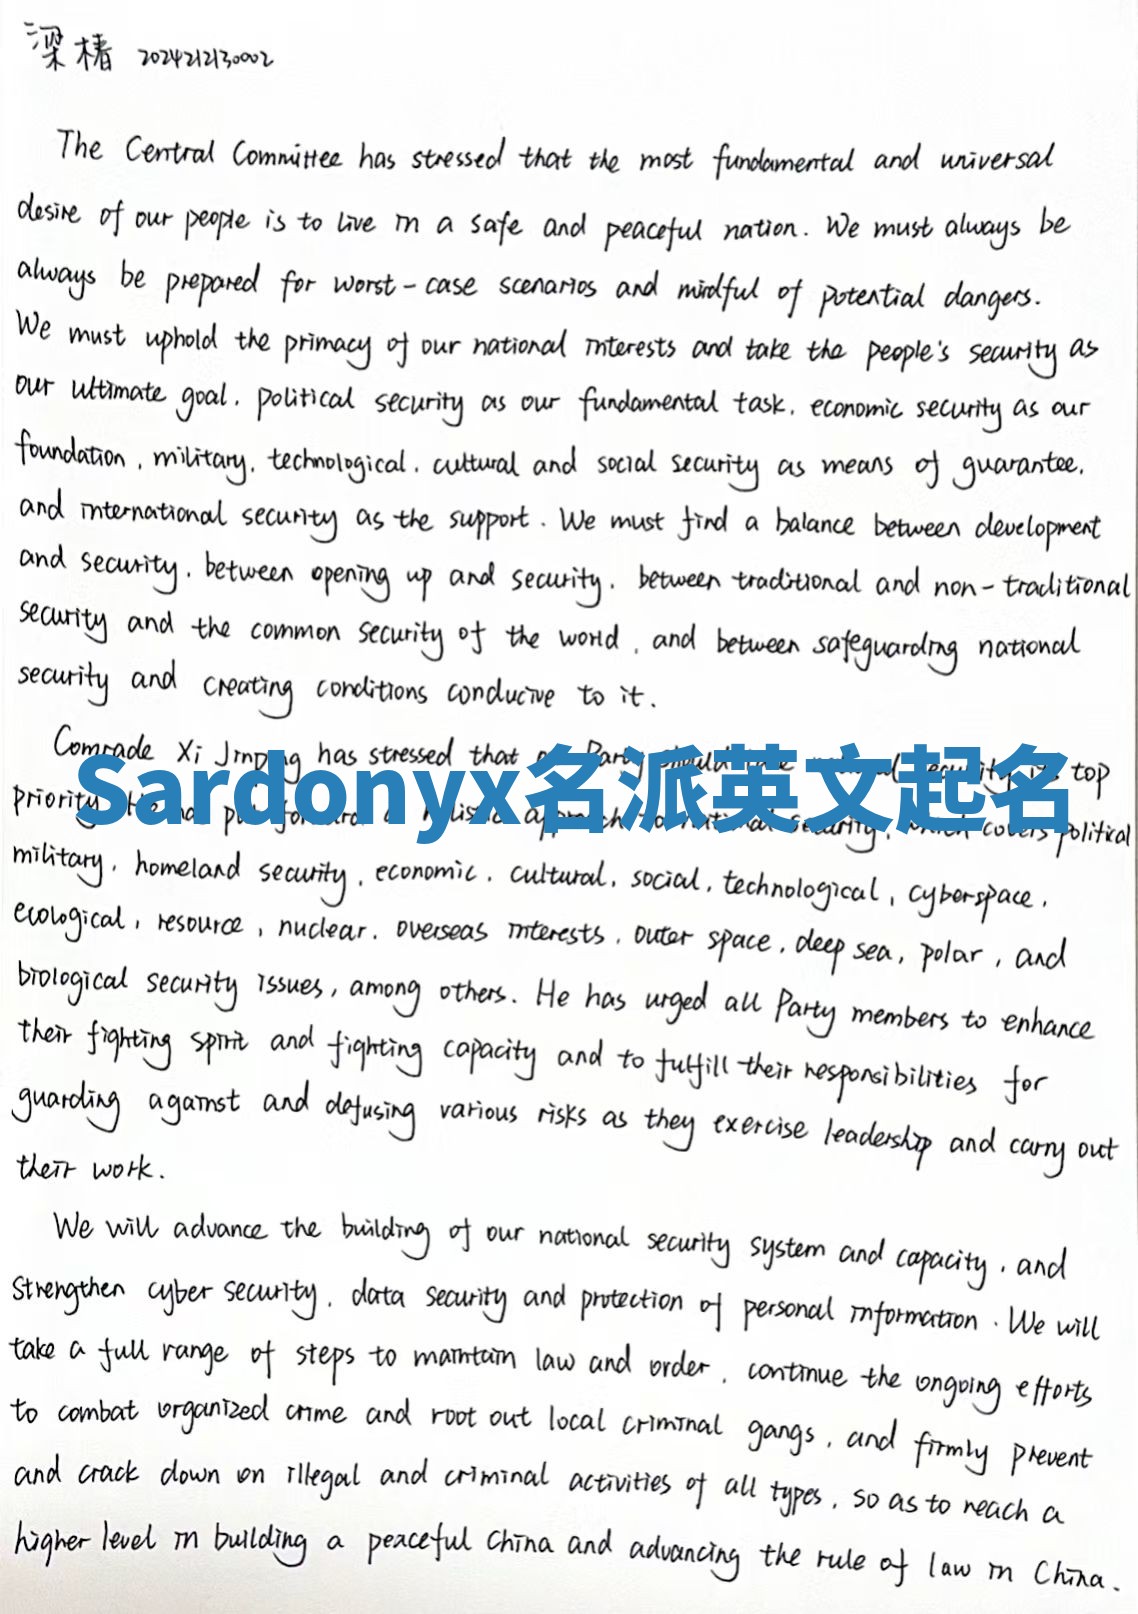 梁椿 2024212130002
The Central Committee has stressed that the most fundamental and universal
desire of our people is to live in a safe and peaceful nation. We must always be
always be prepared for worst-case scenarios and mindful of potential dangers.
We must uphold the primacy of our national interests and take the people's security as
our ultimate goal, political security as our fundamental task, economic security as our
foundation, military, technological, cultural and social security as means of guarantee,
and international security as the support. We must find a balance between development
and security, between opening up and security, between traditional and non-traditional
security and the common security of the world, and between safeguarding national
security and creating conditions conducive to it.
Comrade Xi Jinping has stressed that Party should national security its top
Sardonyx名派英文起名
priority. He has put forward a holistic approach to national security, which covers political
military, homeland security, economic, cultural, social, technological, cyberspace,
ecological, resource, nuclear, overseas interests, outer space, deep sea, polar, and
biological security issues, among others. He has urged all Party members to enhance
their fighting spirit and fighting capacity and to fulfill their responsibilities for
guarding against and defusing various risks as they exercise leadership and carry out
their work.
We will advance the building of our national security system and capacity, and
strengthen cyber security, data security and protection of personal information. We will
take a full range of steps to maintain law and order, continue the ongoing efforts
to combat organized crime and root out local criminal gangs, and firmly prevent
and crack down on illegal and criminal activities of all types, so as to reach a
higher level in building a peaceful China and advancing the rule of law in China.